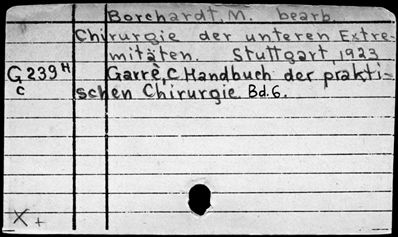 Borchardt, M. bearb.
Chirurgie der unteren Extre-
mitäten. Stuttgart, 1923
G 239 H Garrè, C Handbuch der prakti-
c schen Chirurgie. Bd. 6.
X +